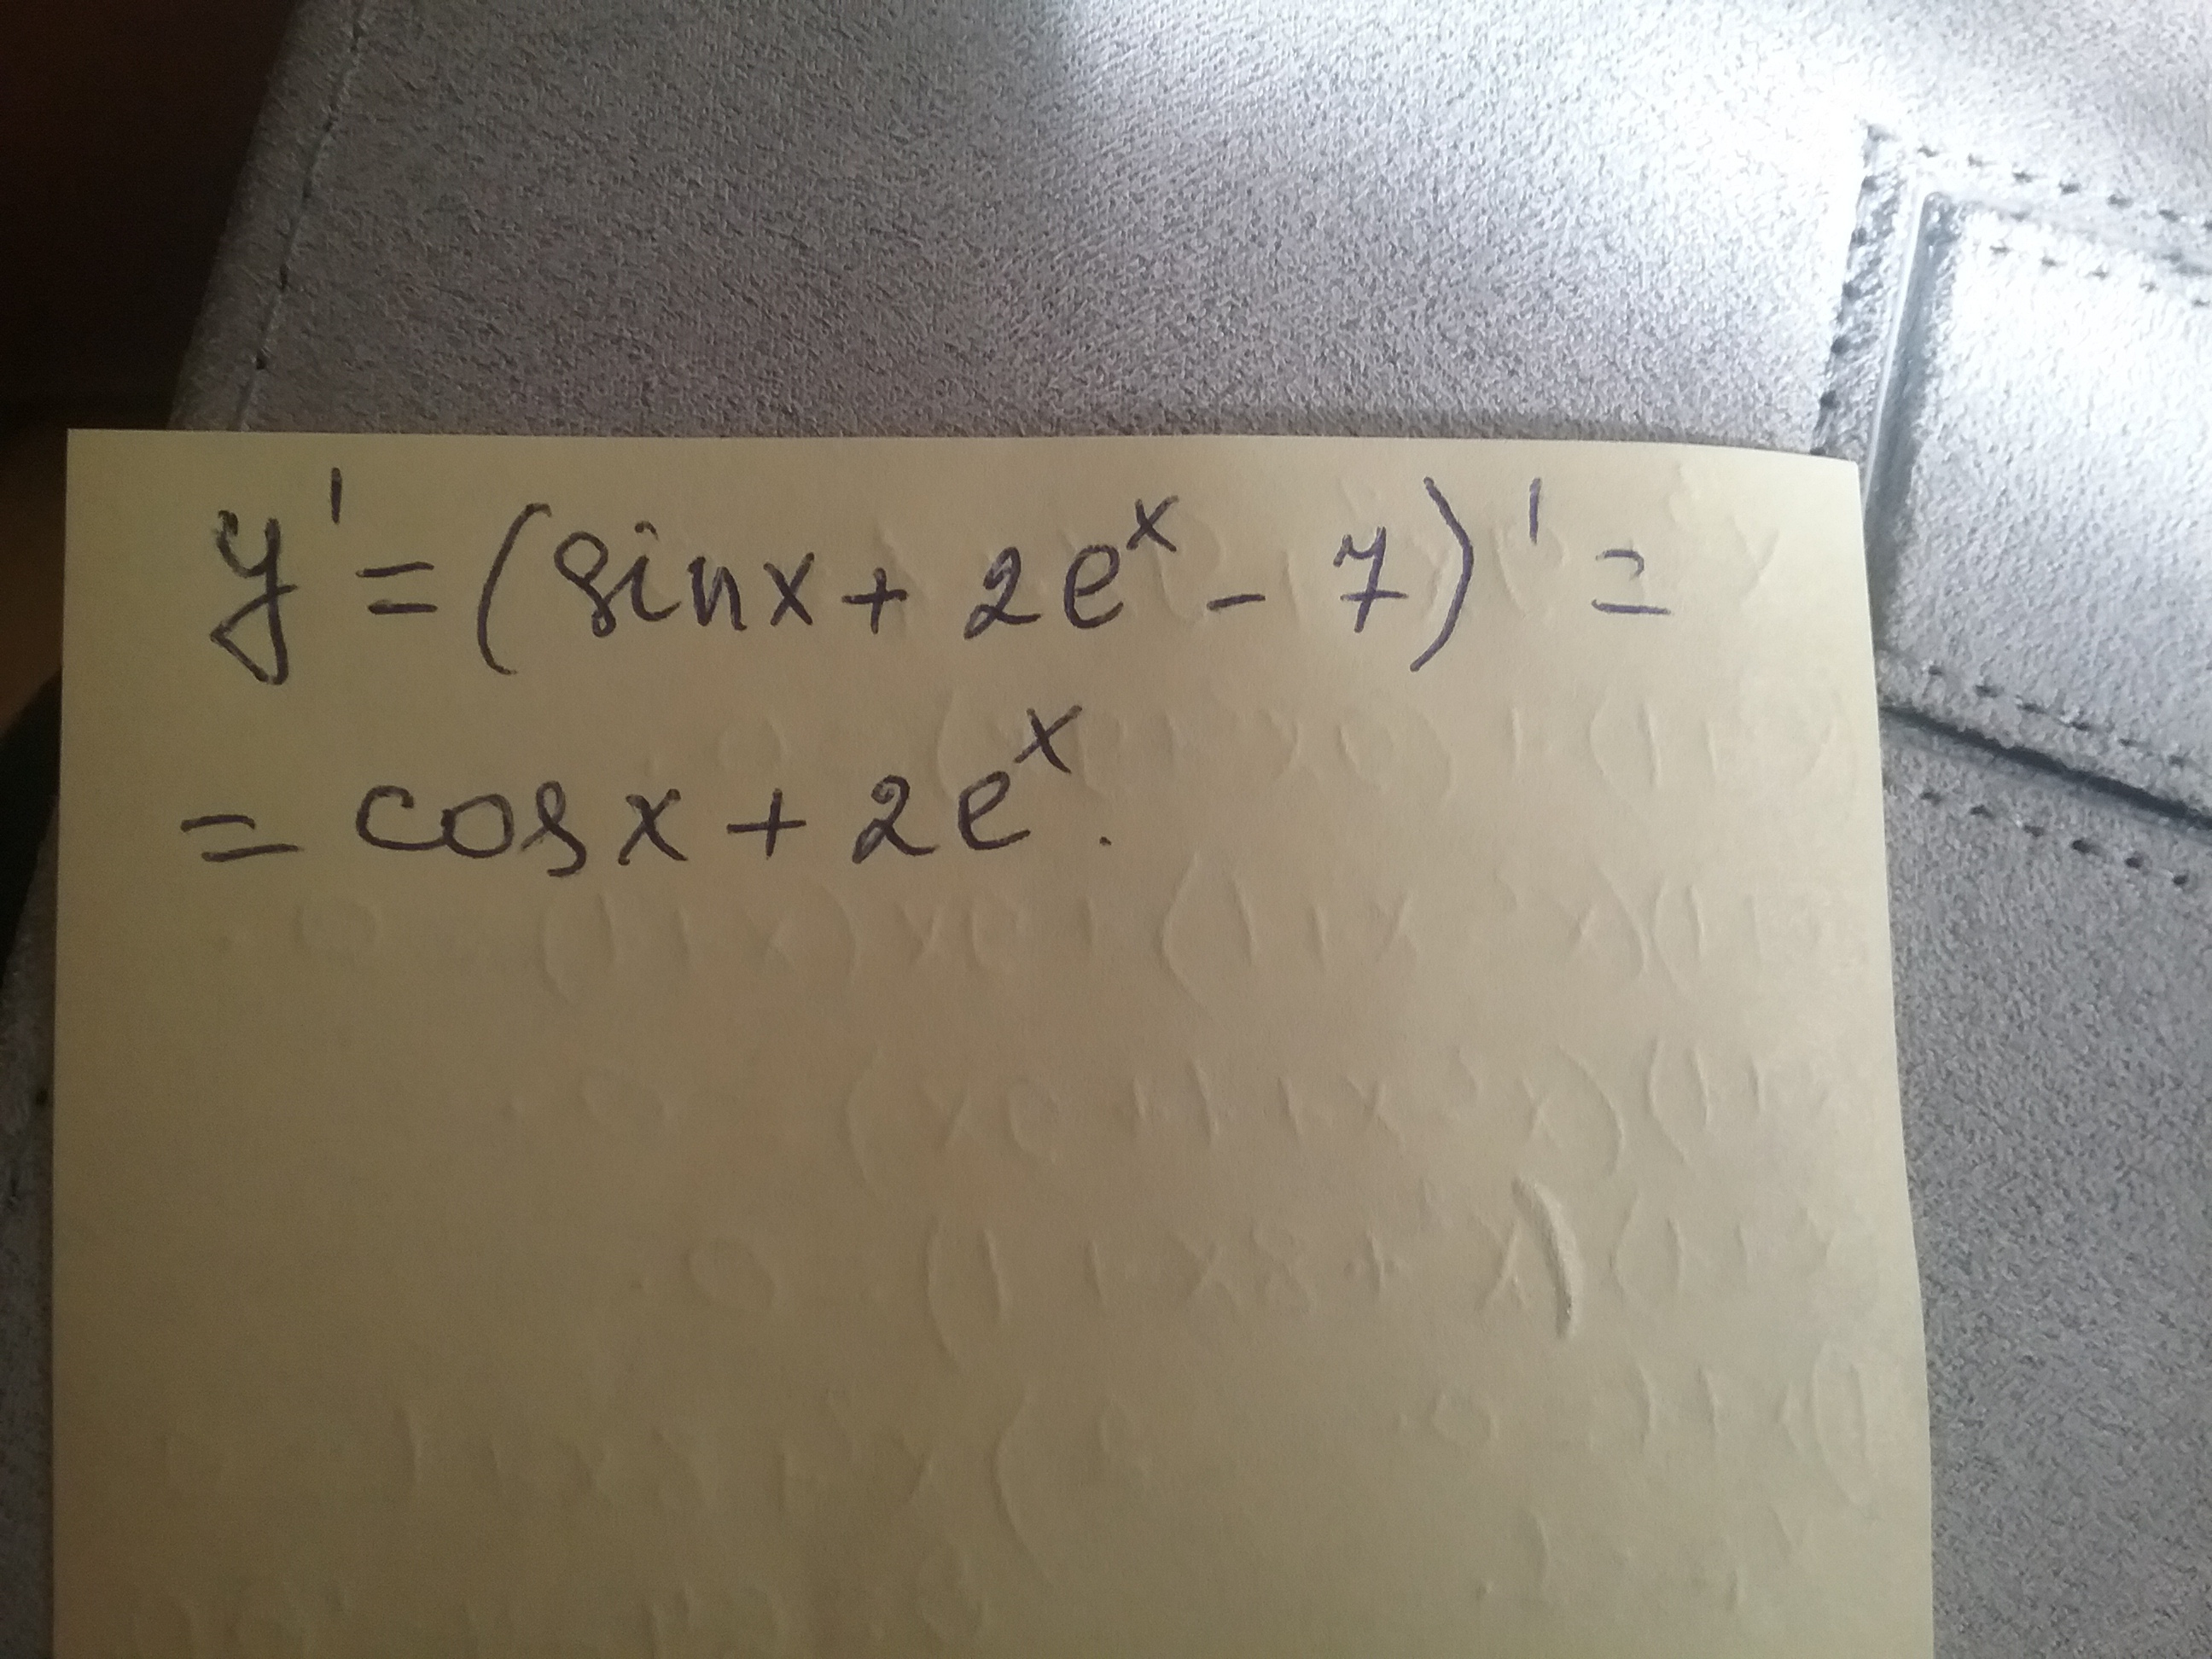 y' = (sinx + 2e^x - 7)' =
= cosx + 2e^x.